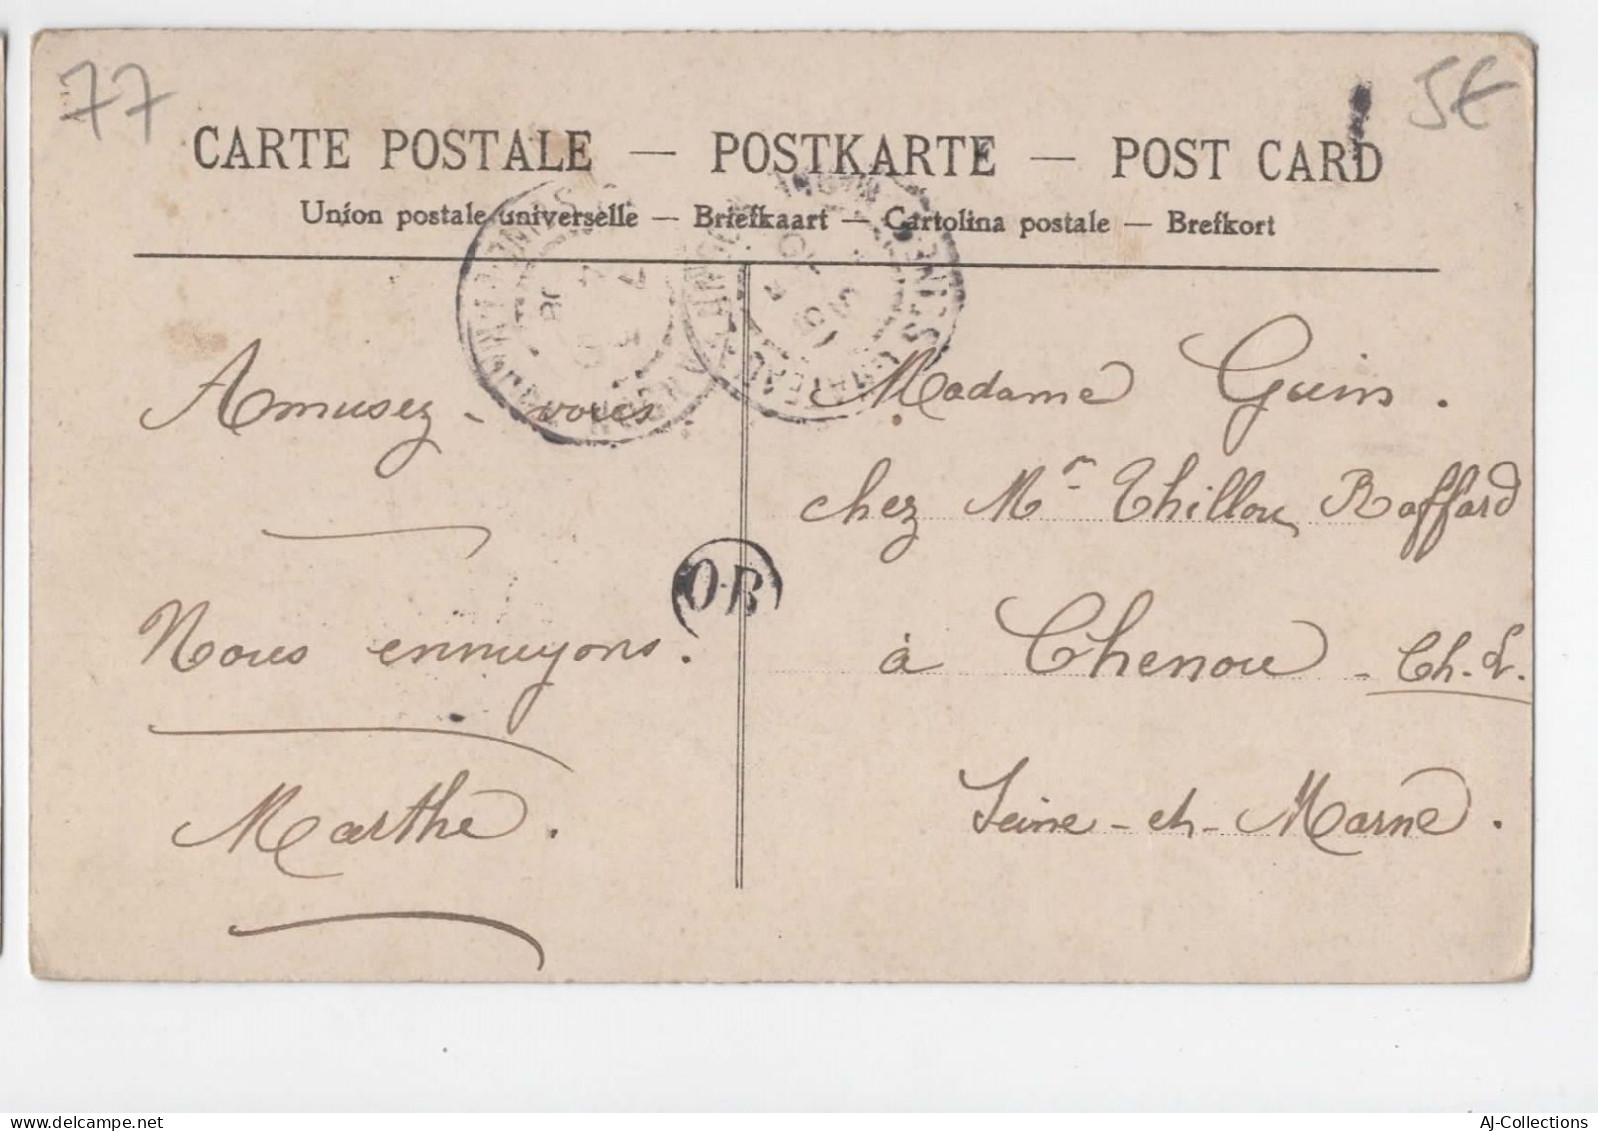 77
5€
CARTE POSTALE — POSTKARTE — POST CARD
Union postale universelle — Briefkaart — Cartolina postale — Brefkort
Amusez-vous
Nous ennuyons.
Marthe.
O.B
Madame Guin.
chez Mr Thillou Raffard
à Chenou - Ch.L.
Seine-et-Marne.
AJ-Collections